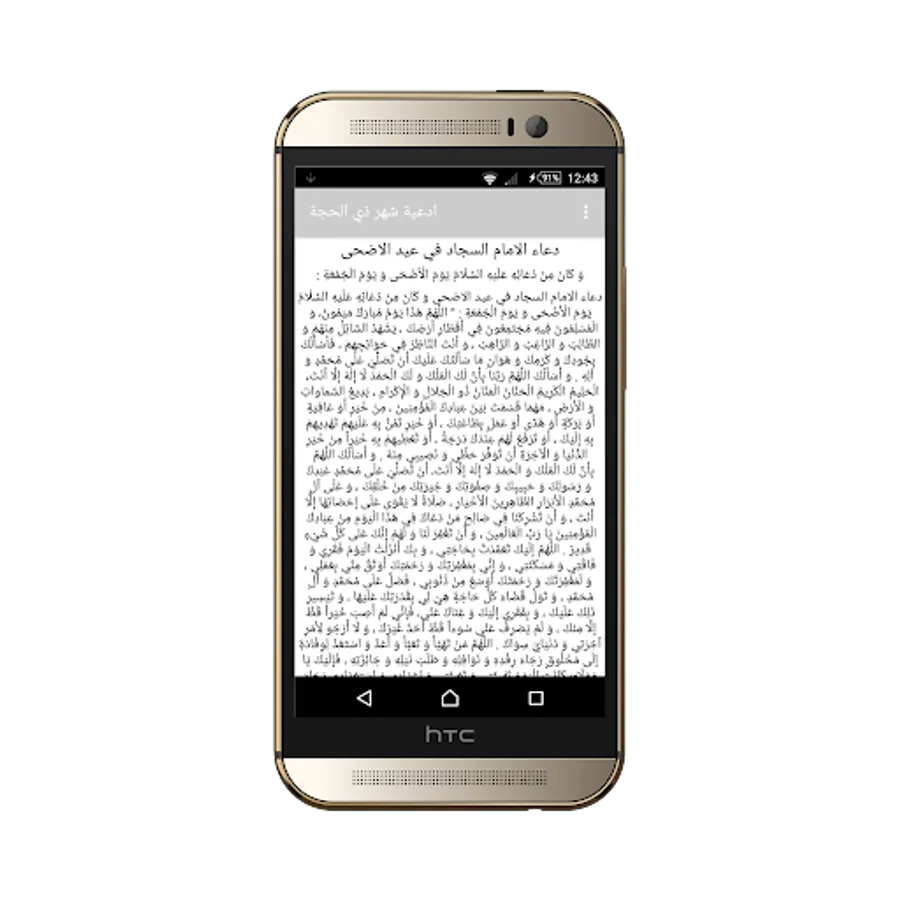 91% 12:43
ادعية شهر ذي الحجة
دعاء الامام السجاد في عيد الاضحى
وَ كَانَ مِنْ دُعَائِهِ عَلَيْهِ السَّلَامُ يَوْمَ الْأَضْحَى وَ يَوْمَ الْجُمُعَةِ :
دعاء الامام السجاد في عيد الاضحى وَ كَانَ مِنْ دُعَائِهِ عَلَيْهِ السَّلَامُ
يَوْمَ الْأَضْحَى وَ يَوْمَ الْجُمُعَةِ : " اللَّهُمَّ هَذَا يَوْمٌ مُبَارَكٌ مَيْمُونٌ، وَ
الْمُسْلِمُونَ فِيهِ مُجْتَمِعُونَ فِي أَقْطَارِ أَرْضِكَ ، يَشْهَدُ السَّائِلُ مِنْهُمْ وَ
الطَّالِبُ وَ الرَّاغِبُ وَ الرَّاهِبُ ، وَ أَنْتَ النَّاظِرُ فِي حَوَائِجِهِمْ ، فَأَسْأَلُكَ
بِجُودِكَ وَ كَرَمِكَ وَ هَوَانِ مَا سَأَلْتُكَ عَلَيْكَ أَنْ تُصَلِّيَ عَلَى مُحَمَّدٍ وَ
آلِهِ . وَ أَسْأَلُكَ اللَّهُمَّ رَبَّنَا بِأَنَّ لَكَ الْمُلْكَ وَ لَكَ الْحَمْدَ لَا إِلَهَ إِلَّا أَنْتَ،
الْحَلِيمُ الْكَرِيمُ الْحَنَّانُ الْمَنَّانُ ذُو الْجَلَالِ وَ الْإِكْرَامِ ، بَدِيعُ السَّمَاوَاتِ
وَ الْأَرْضِ ، مَهْمَا قَسَمْتَ بَيْنَ عِبَادِكَ الْمُؤْمِنِينَ ، مِنْ خَيْرٍ أَوْ عَافِيَةٍ
أَوْ بَرَكَةٍ أَوْ هُدًى أَوْ عَمَلٍ بِطَاعَتِكَ ، أَوْ خَيْرٍ تَمُنُّ بِهِ عَلَيْهِمْ تَهْدِيهِمْ
بِهِ إِلَيْكَ ، أَوْ تَرْفَعُ لَهُمْ عِنْدَكَ دَرَجَةً ، أَوْ تُعْطِيهِمْ بِهِ خَيْراً مِنْ خَيْرِ
الدُّنْيَا وَ الْآخِرَةِ أَنْ تُوَفِّرَ حَظِّي وَ نَصِيبِي مِنْهُ . وَ أَسْأَلُكَ اللَّهُمَّ
بِأَنَّ لَكَ الْمُلْكَ وَ الْحَمْدَ لَا إِلَهَ إِلَّا أَنْتَ، أَنْ تُصَلِّيَ عَلَى مُحَمَّدٍ عَبْدِكَ
وَ رَسُولِكَ وَ حَبِيبِكَ وَ صِفْوَتِكَ وَ خِيَرَتِكَ مِنْ خَلْقِكَ ، وَ عَلَى آلِ
مُحَمَّدٍ الْأَبْرَارِ الطَّاهِرِينَ الْأَخْيَارِ ، صَلَاةً لَا يَقْوَى عَلَى إِحْصَائِهَا إِلَّا
أَنْتَ ، وَ أَنْ تُشْرِكَنَا فِي صَالِحِ مَنْ دَعَاكَ فِي هَذَا الْيَوْمِ مِنْ عِبَادِكَ
الْمُؤْمِنِينَ يَا رَبَّ الْعَالَمِينَ ، وَ أَنْ تَغْفِرَ لَنَا وَ لَهُمْ إِنَّكَ عَلَى كُلِّ شَيْءٍ
قَدِيرٌ . اللَّهُمَّ إِلَيْكَ تَعَمَّدْتُ بِحَاجَتِي ، وَ بِكَ أَنْزَلْتُ الْيَوْمَ فَقْرِي وَ
فَاقَتِي وَ مَسْكَنَتِي ، وَ إِنِّي بِمَغْفِرَتِكَ وَ رَحْمَتِكَ أَوْثَقُ مِنِّي بِعَمَلِي ،
وَ لَمَغْفِرَتُكَ وَ رَحْمَتُكَ أَوْسَعُ مِنْ ذُنُوبِي ، فَصَلِّ عَلَى مُحَمَّدٍ وَ آلِ
مُحَمَّدٍ ، وَ تَوَلَّ قَضَاءَ كُلِّ حَاجَةٍ هِيَ لِي بِقُدْرَتِكَ عَلَيْهَا ، وَ تَيْسِيرِ
ذَلِكَ عَلَيْكَ ، وَ بِفَقْرِي إِلَيْكَ وَ غِنَاكَ عَنِّي، فَإِنِّي لَمْ أُصِبْ خَيْراً قَطُّ
إِلَّا مِنْكَ ، وَ لَمْ يَصْرِفْ عَنِّي سُوءاً قَطُّ أَحَدٌ غَيْرُكَ ، وَ لَا أَرْجُو لِأَمْرِ
آخِرَتِي وَ دُنْيَايَ سِوَاكَ . اللَّهُمَّ مَنْ تَهَيَّأَ وَ تَعَبَّأَ وَ أَعَدَّ وَ اسْتَعَدَّ لِوِفَادَةٍ
إِلَى مَخْلُوقٍ رَجَاءَ رِفْدِهِ وَ نَوَافِلِهِ وَ طَلَبَ نَيْلِهِ وَ جَائِزَتِهِ ، فَإِلَيْكَ يَا
hTC